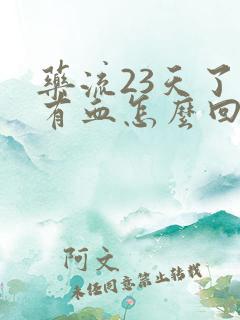 药流23天了
有血怎麽回
阿文
未经同意禁止转载